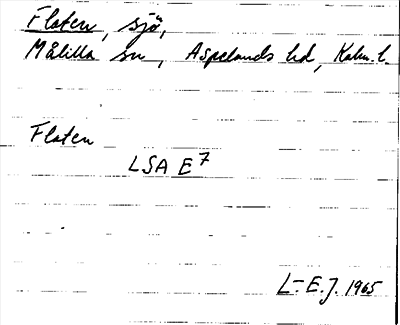 Flaten, sjö,
Målilla sn, Aspelands hd, Kalm. l.
Flaten
LSA E7
L-E.J. 1965